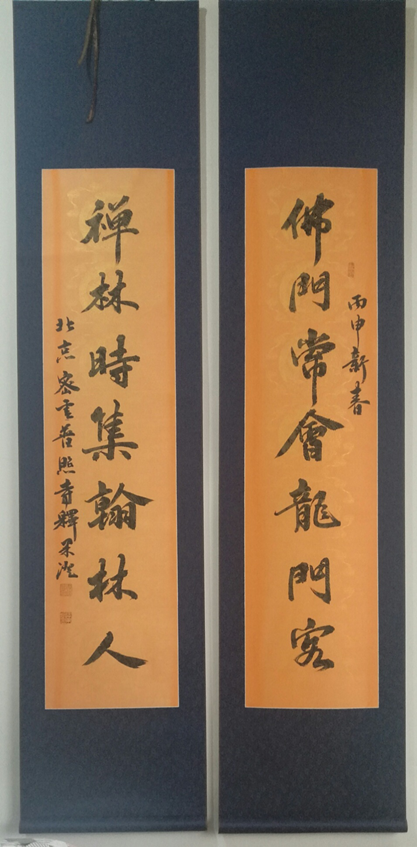 丙申新春
佛門常會龍門客
禅林時集翰林人
北京密雲普照寺釋果澄